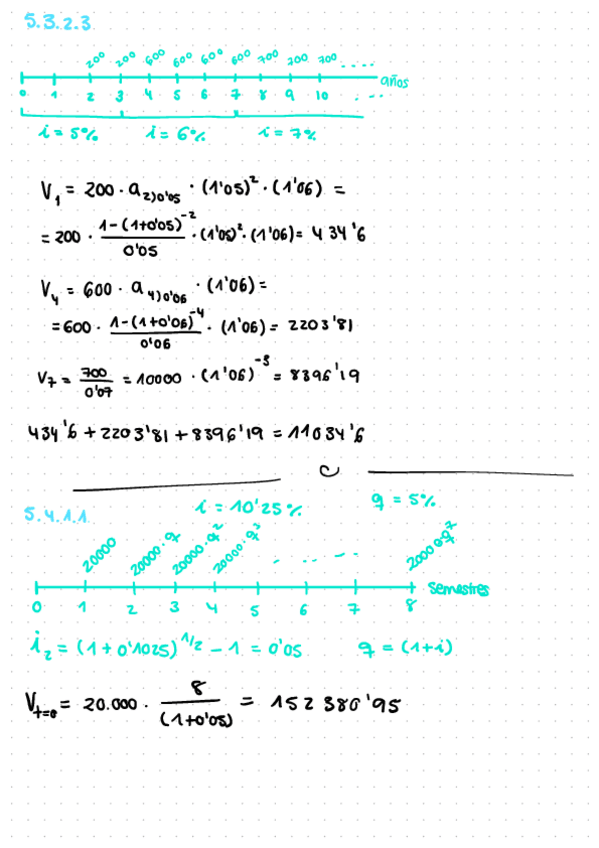 5.3.2.3
200 200 600 600 600 600 700 700 700 ....
años
0 1 2 3 4 5 6 7 8 9 10 ...
i = 5% i = 6% i = 7%
V₁ = 200 · a₂⌉0'05 · (1'05)² · (1'06) =
= 200 · (1-(1+0'05)⁻²)/0'05 · (1'05)² · (1'06) = 434'6
V₄ = 600 · a₄⌉0'06 · (1'06) =
= 600 · (1-(1+0'06)⁻⁴)/0'06 · (1'06) = 2203'81
V7 = 700/0'07 = 10000 · (1'06)⁻³ = 8396'19
434'6 + 2203'81 + 8396'19 = 11034'6
i = 10'25% q = 5%
5.4.1.1
20000 20000·q 20000·q² 20000·q³ ... 20000·q⁷
semestres
0 1 2 3 4 5 6 7 8
i₂ = (1+0'1025)^1/2 - 1 = 0'05 q = (1+i)
Vt=0 = 20.000 · 8/(1+0'05) = 152380'95